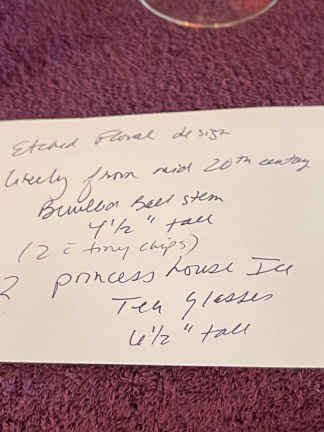 Etched Floral design
likely from mid 20th century
Bell stem
4 1/2" tall
(2 c̄ tiny chips)
2 princess house Ice
Tea glasses
6 1/2" tall